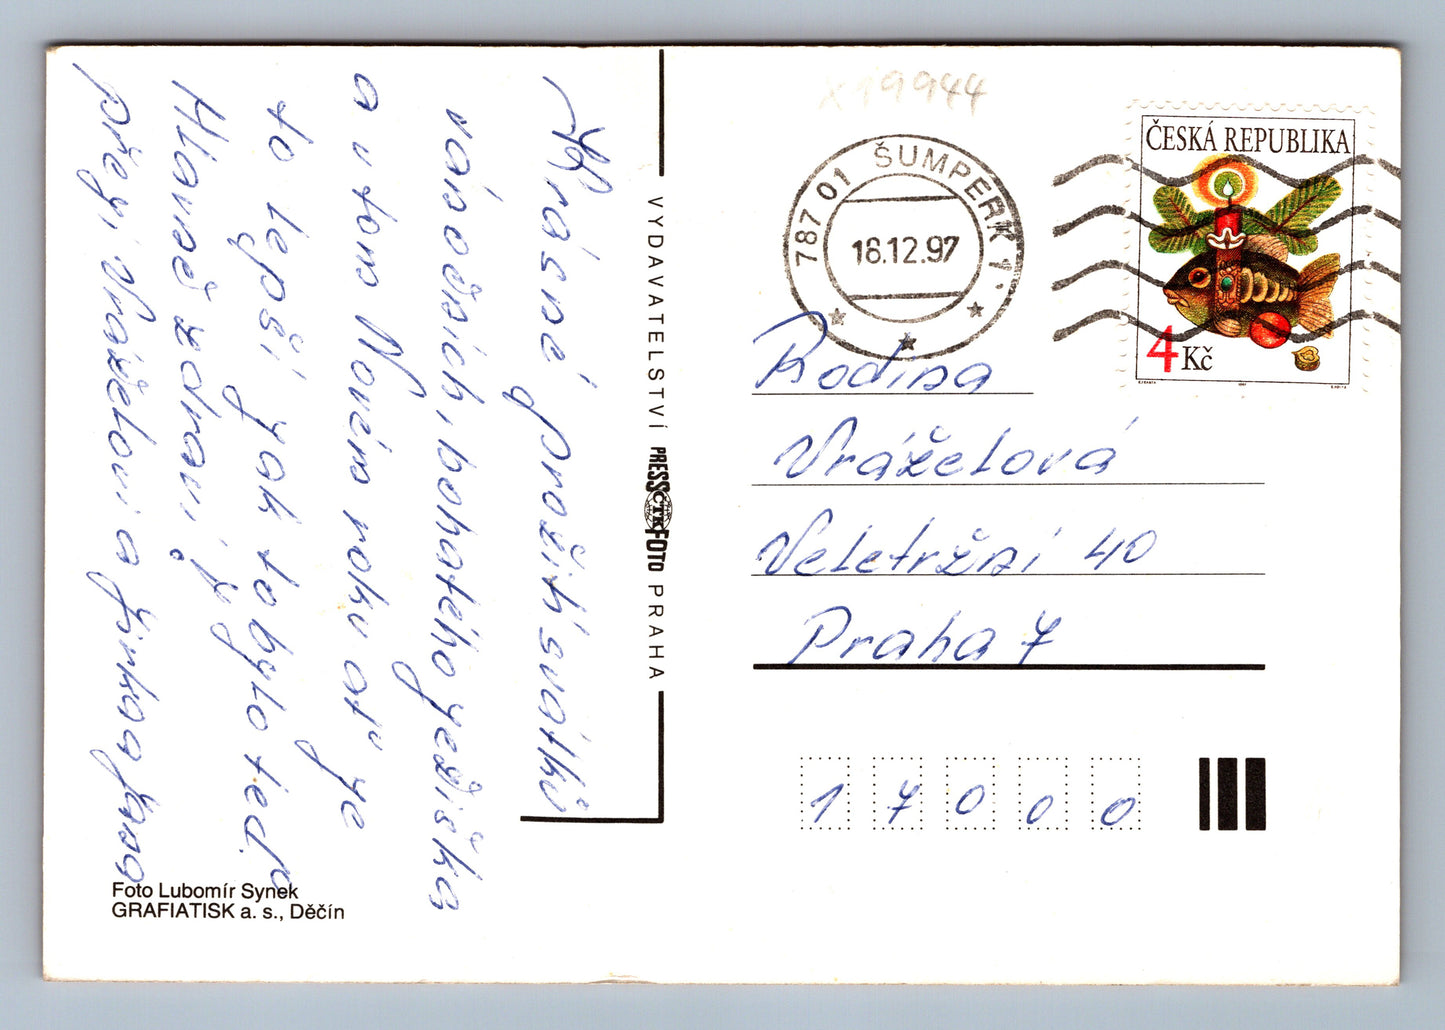 Krásné prožití svátků
vánočních, bohatého ježíška
a v tom Novém roku ať je
to lepší jak to bylo teď.
Hlavně zdraví, je
přejí Vráželovi a Jirka a Jana
VYDAVATELSTVÍ PRESSFOTO PRAHA
ČTK
Foto Lubomír Synek
GRAFIATISK a. s., Děčín
x19944
787 01 ŠUMPERK 1
18.12.97
ČESKÁ REPUBLIKA
4 Kč
Rodina
Vráželová
Veletržní 40
Praha 7
1 7 0 0 0